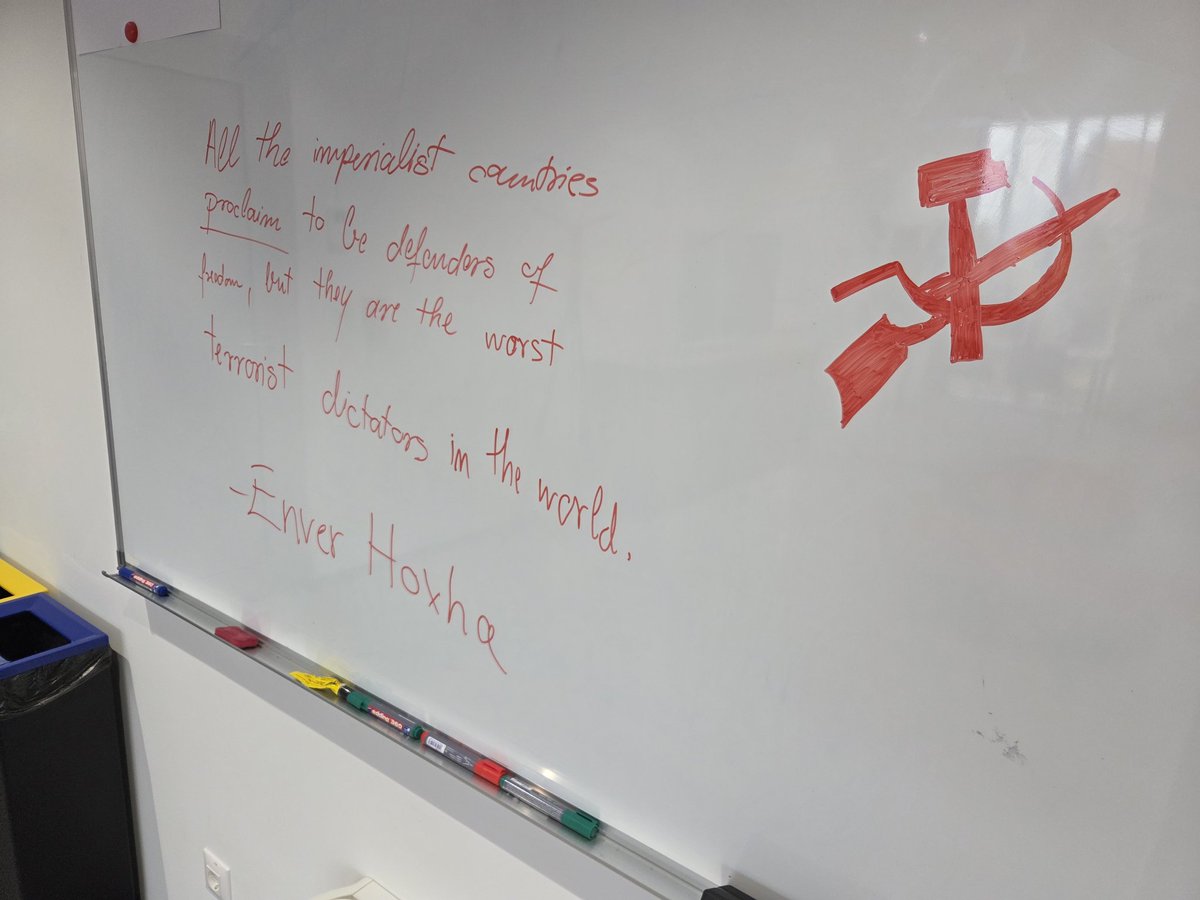 All the imperialist countries
proclaim to be defenders of
freedom, but they are the worst
terrorist dictators in the world.
-Enver Hoxha
edding 360